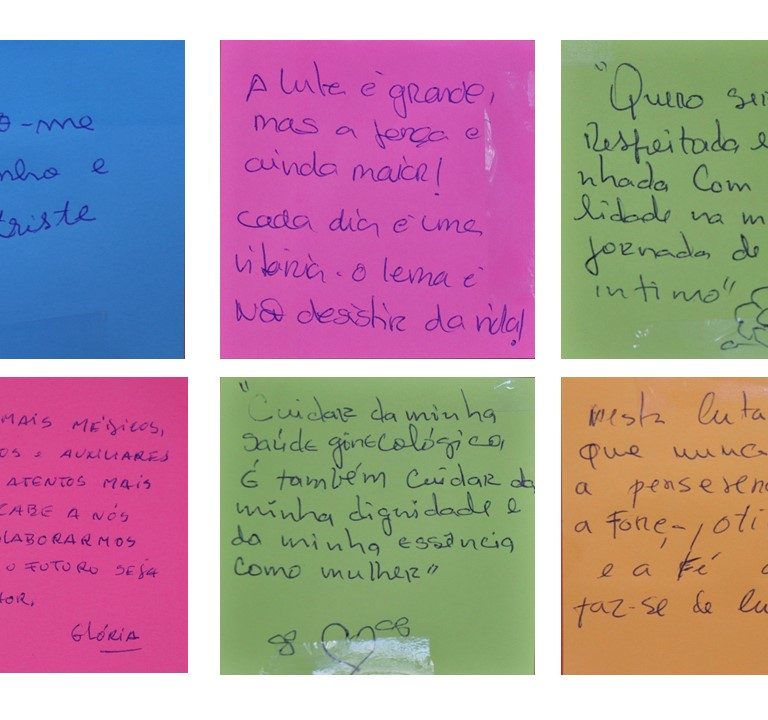 -me
e
triste
A luta é grande,
mas a força e
ainda maior!
cada dia é uma
vitória. o lema é
NÃO desistir da vida!
"Quero ser
Respeitada e
nhada Com
lidade na m
jornada de
intimo"
MAIS MÉDICOS,
OS E AUXILIARES
ATENTOS MAIS
CABE A NÓS
LABORARMOS
O FUTURO SEJA
HOR,
GLÓRIA
"Cuidar da minha
saúde ginecológica,
É também cuidar da
minha dignidade e
da minha essência
como mulher"
nesta luta
que nunca
a perseveran
a Força, oti
e a Fé
faz-se de lu